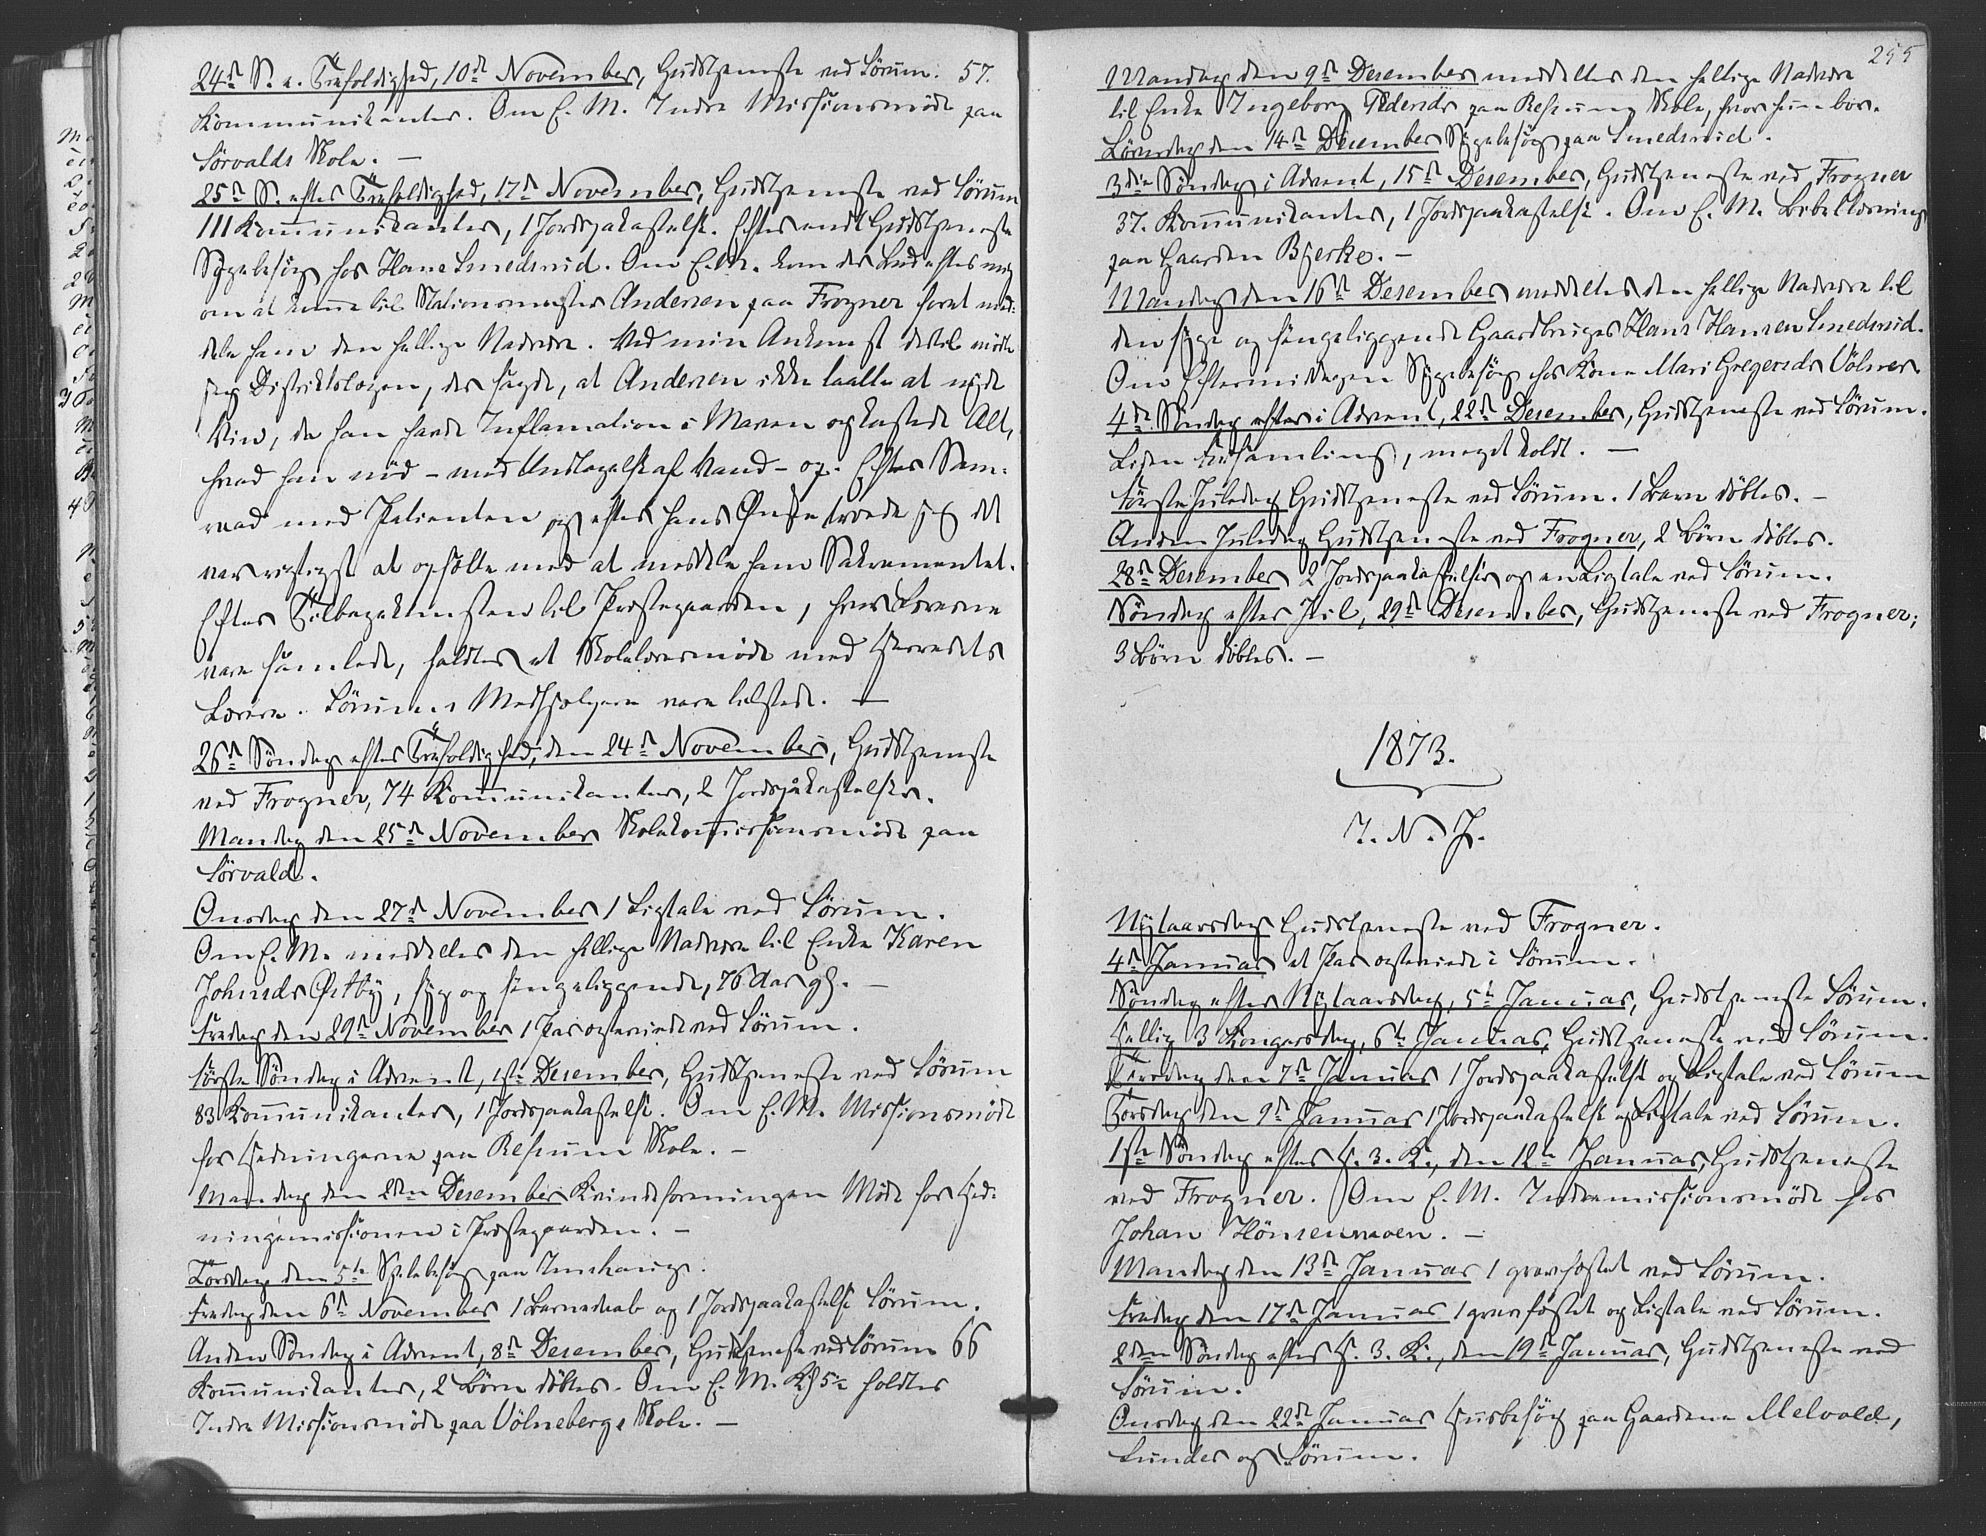 24de S. e. Trefoldighed, 10de November, Gudstjeneste ved Sørum. 57.
Kommunikanter. Om E. M. Indre Missionsmöde paa
Sörvalds Skole. —
25de S. efter Trefoldighed, 17de November, Gudstjeneste ved Sörum
111 Kommunikanter, 1 Jordpaakastelse. Efter endt Gudstjeneste
Sygebesög hos Hans Smedsrud. Om E.M. kom der Bud efter mig
om at komme til Stationsmester Andersen paa Frogner foret med-
dele ham den hellige Nadvere. Ved min Ankomst dertil mödte
jeg Distriktslægen, der sagde, at Andersen ikke taalte at nyde
Vin, da han havde Inflamation i Maven og kastede Alt,
hvad han nöd – med Undtagelse af Vand – op. Efter Sam-
raad med Patienten og efter hans Ønske troede jeg det
var rigtigst at opsætte med at meddele ham Sakramentet.
Efter Tilbagekomsten til Præstegaarden, hvor Lærerne
vare samlede, holdtes et Skolelærermöde med Herredets
Lærere. Sörums Medhjælpere vare tilstede. —
26de Söndag efter Trefoldighed, den 24de November, Gudstjeneste
ved Frogner, 74 Kommunikanter, 2 Jordpåkastelser.
Mandag den 25de November Skolekommissionsmöde paa
Sörvald.
Onsdag den 27de November 1 Ligtale ved Sörum.
Om E. M. meddeltes den hellige Nadvere til Enke Karen
Johnsds Østby, syg og sengeliggende, 76 Aar gl. —
Fredag den 29de November 1 Par egteviedt ved Sörum.
Förste Söndag i Advent, 1ste Desember, Gudstjeneste ved Sörum
83 Kommunikanter, 1 Jordpaakastelse. Om E. M. Missionsmöde
for Hedningerne paa Refsum Skole. —
Mandag den 2den Desember Kvindeforeningen Möde for Hed-
ningemissionen i Præstegaarden. —
Torsdag den 5te Sygebesög paa Imshaug.
Fredag den 6te November 1 Barnedaab og 1 Jordpaakastelse Sörum.
Anden Söndag i Advent, 8de Desember, Gudstjeneste ved Sörum 66
Kommunikanter, 2 Börn döbtes. Om E. M. Kl 5 holdtes
Indre Missionsmöde paa Völneberg Skole. —
255
Mandag den 9de Desember meddeltes den hellige Nadvere
til Enke Ingeborg Pedersds paa Refsum Skole, hvor hun bor.
Löverdag den 14de Desember Sygebesög paa Smedsrud.
3die Söndag i Advent, 15de Desember, Gudstjeneste ved Frogner
37. Kommunikanter, 1 Jordpaakastelse. Om E. M. Bibellæsning
paa Gaarden Bjerke. —
Mandag den 16de Desember meddeltes den hellige Nadvere til
den syge og sengeliggende Gaardbruger Hans Hansen Smedsrud.
Om Eftermiddagen Sygebesög hos Kone Mari Gregersds Völner
4de Söndag efter i Advent, 22de Desember, Gudstjeneste ved Sörum.
Liden Forsamling, meget koldt. —
Förste Juledag Gudstjeneste ved Sörum. 1 Barn döbtes. —
Anden Juledag Gudstjeneste ved Frogner, 2 Börn döbtes.
28de Desember 2 Jordpaakastelser og en Ligtale ved Sörum.
Söndag efter Jul, 29de Desember, Gudstjeneste ved Frogner;
3 Börn döbtes. —
1873.
I. N. J.
Nytaarsdag Gudstjeneste ved Frogner.
4de Januar et Par egteviedt i Sörum.
Söndag efter Nytaarsdag, 5te Januar, Gudstjeneste Sörum.
Hellig 3 Kongersdag, 6te Januar, Gudstjeneste ved Sörum.
Tirsdag den 7de Januar 1 Jordpaakastelse og Ligtale ved Sörum
Torsdag den 9de Januar 1 Jordpaakastelse og Ligtale ved Sörum.
1ste Söndag efter H. 3. K., den 12te Januar, Gudstjeneste
ved Frogner. Om E. M. Indremissionsmöde hos
Johan Hönsenmoen. —
Mandag den 13de Januar 1 gravfæstet ved Sörum.
Fredag den 17de Januar 1 gravfæstet og Ligtale ved Sörum.
2den Söndag efter H. 3. K., den 19de Januar, Gudstjeneste ved
Sörum.
Onsdag den 22de Januar Husbesög paa Gaardene Melvold,
Lunder og Sörum.